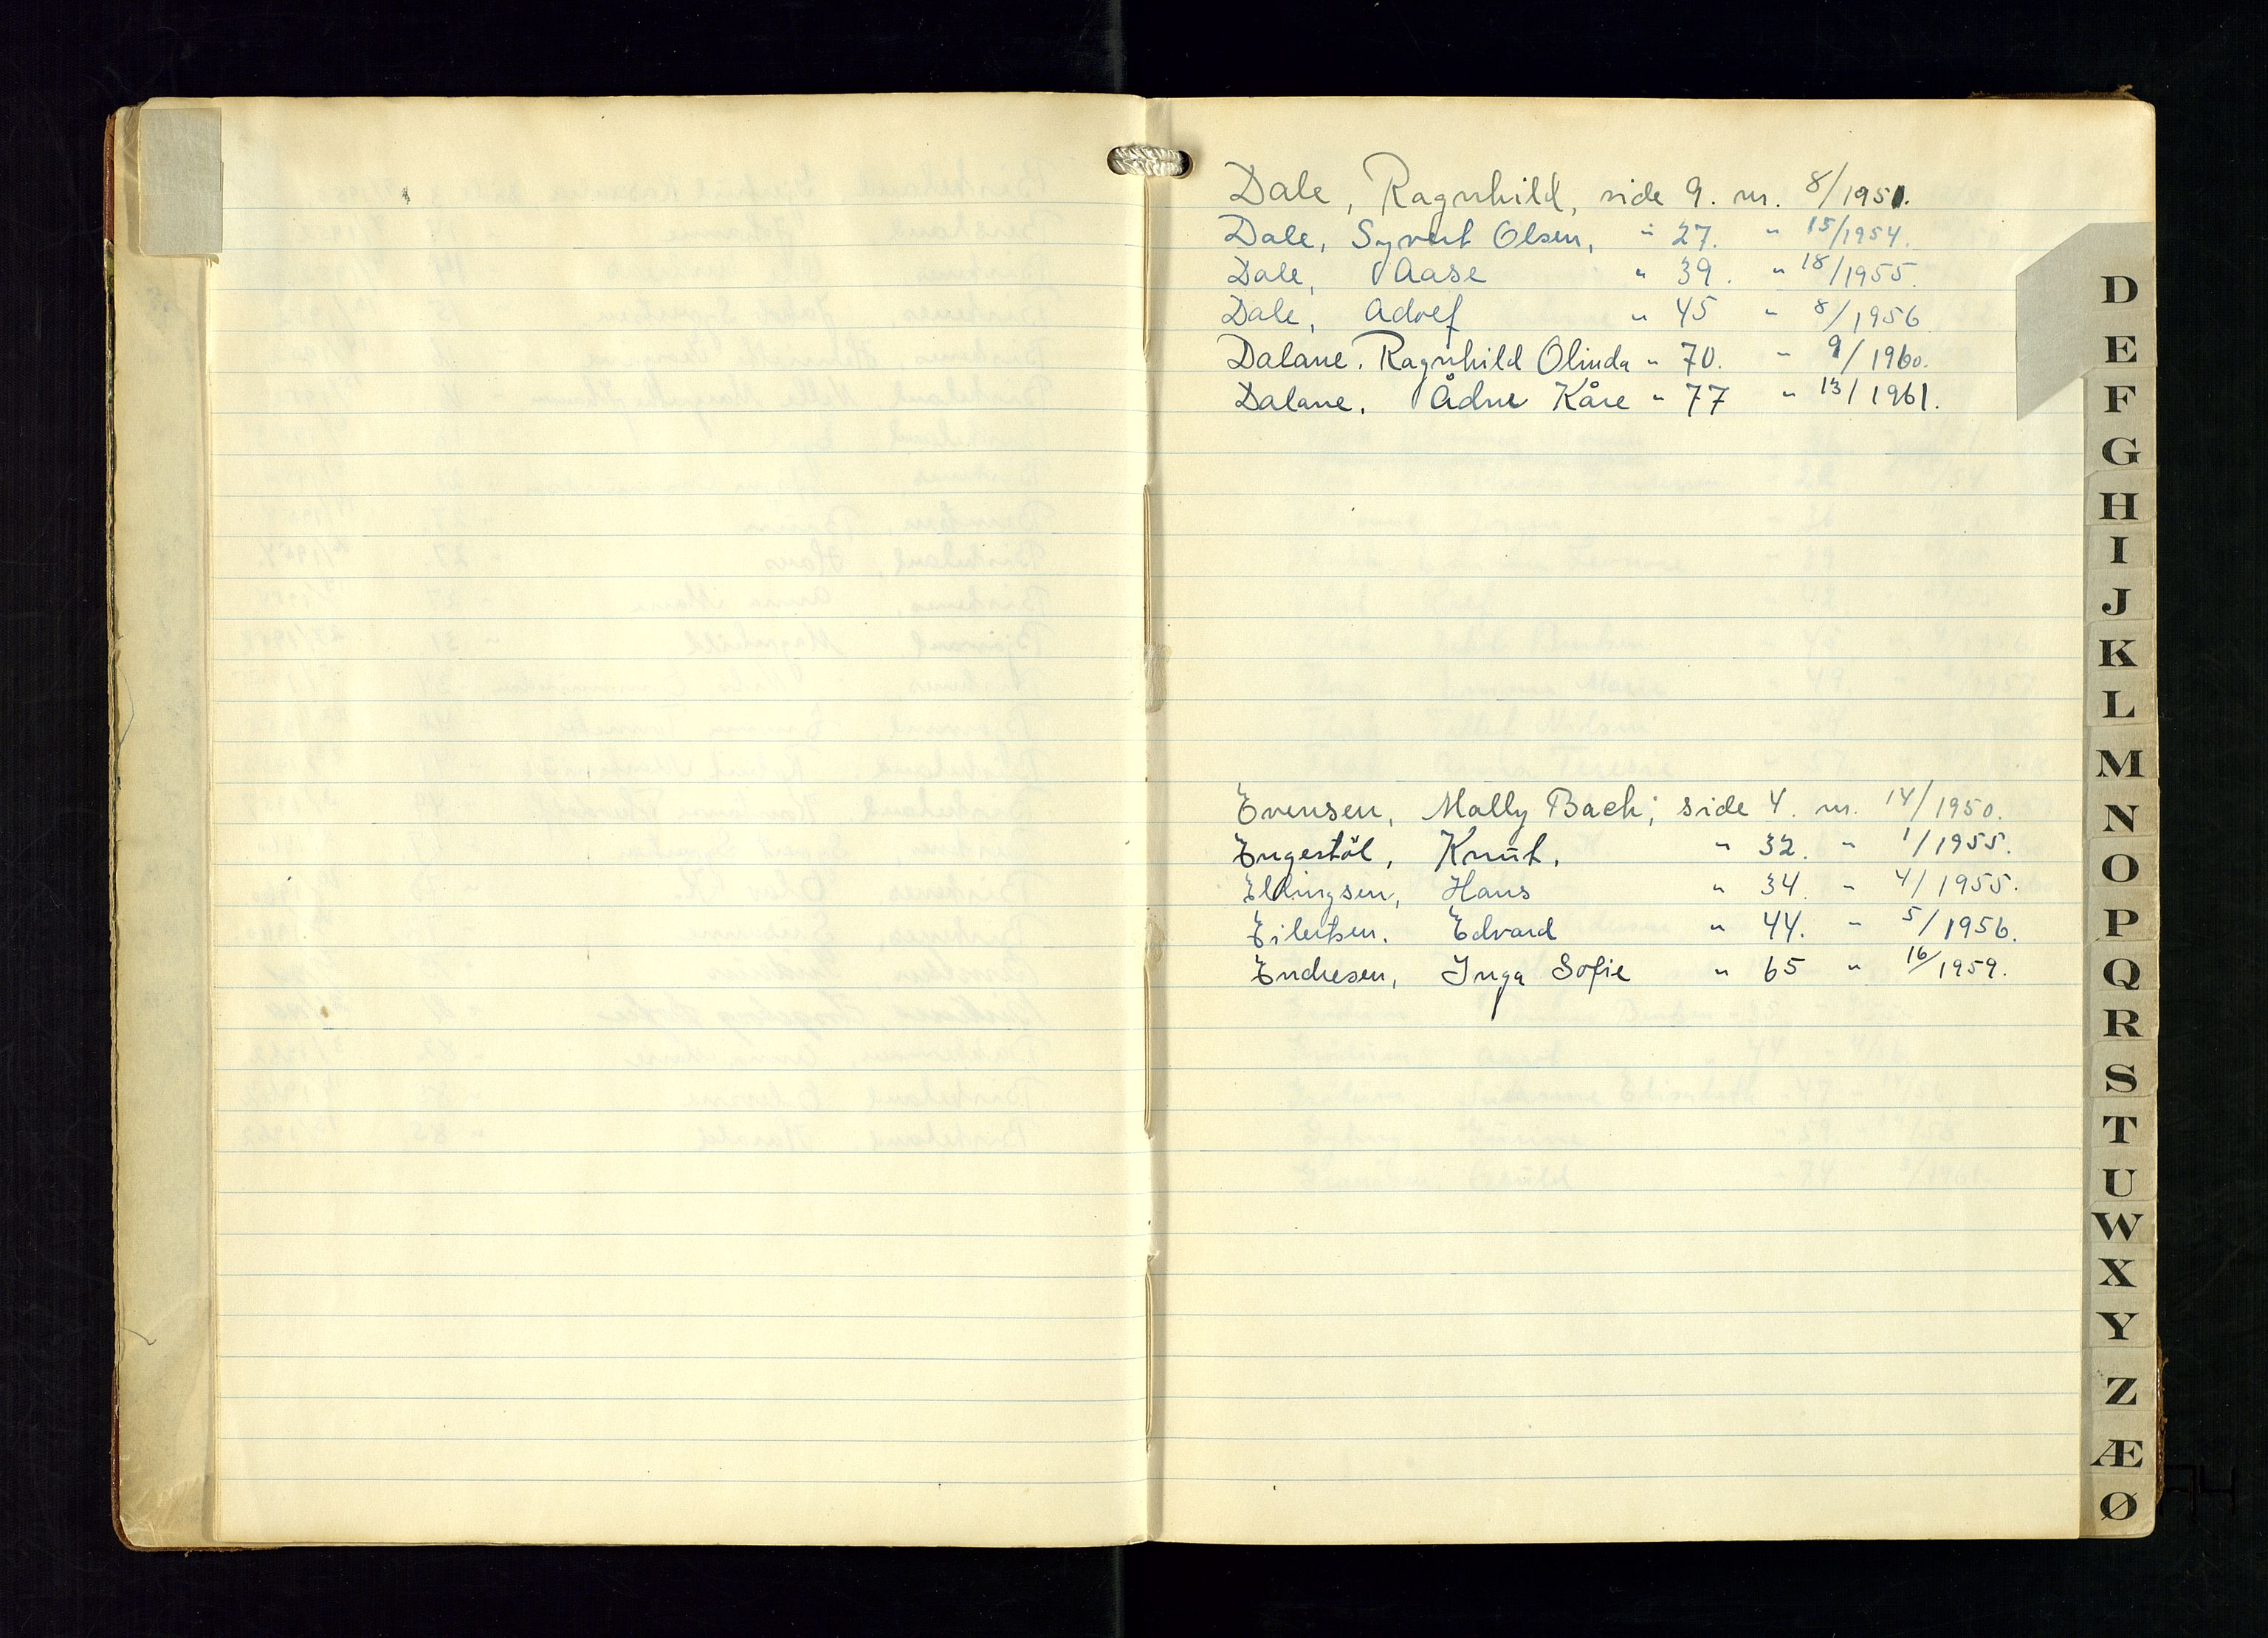 Dale, Ragnhild, side 9. nr. 8/1951.
Dale, Syvert Olsen, " 27. " 15/1954.
Dale, Aase " 39. " 18/1955.
Dale, Adolf " 45 " 8/1956
Dalane. Ragnhild Olinda " 70. " 9/1960.
Dalane. Ådne Kåre " 77 " 13/1961.
Evensen, Mally Bach; side 4. nr. 14/1950.
Engestøl, Knut. " 32. " 1/1955.
Ellingsen, Hans " 34. " 4/1955.
Eilertsen. Edvard " 44. " 5/1956.
Endresen, Inga Sofie " 65 " 16/1959.
D
E
F
G
H
I
J
K
L
M
N
O
P
Q
R
S
T
U
W
X
Y
Z
Æ
Ø